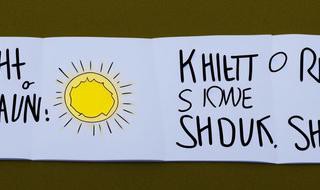 HT
AUN:
KHIETT O R
S IOWE
SHOUK, SH